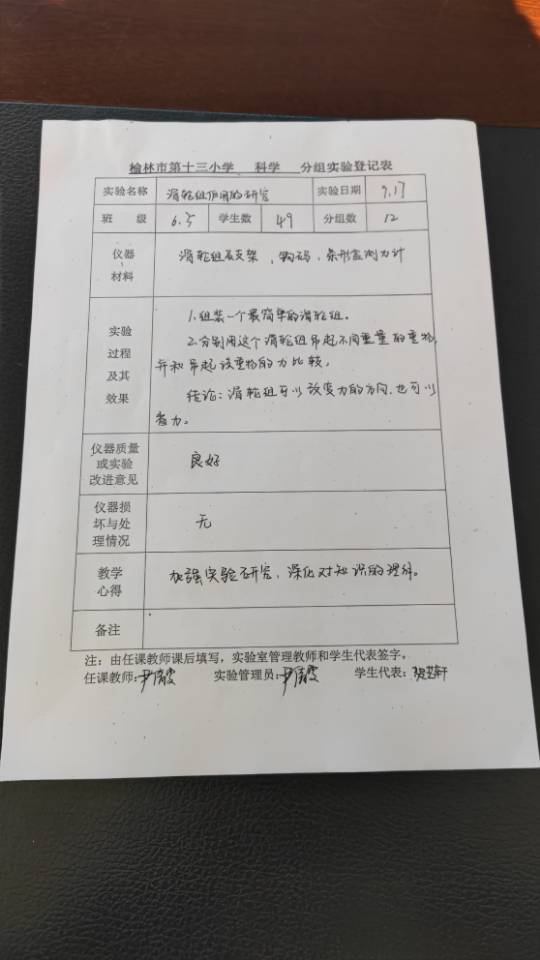 榆林市第十三小学 科学 分组实验登记表
实验名称 滑轮组作用的研究 实验日期 9.17
班级 6.5 学生数 49 分组数 12
仪器
材料
滑轮组及支架，钩码，条形盒测力计
实验
过程
及其
效果
1.组装一个最简单的滑轮组。
2.分别用这个滑轮组吊起不同重量的重物,
并和吊起该重物的力比较。
结论：滑轮组可以改变力的方向,也可以
省力。
仪器质量
或实验
改进意见
良好
仪器损
坏与处
理情况
无
教学
心得
加强实验研究、深化对知识的理解。
备注
注：由任课教师课后填写，实验室管理教师和学生代表签字。
任课教师: 实验管理员: 学生代表: